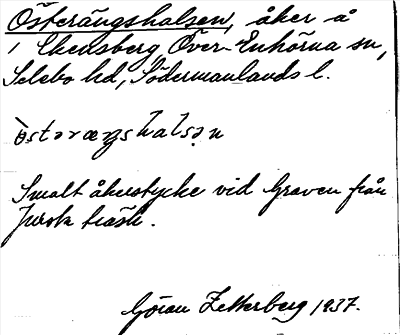 Österängshalsen, åker å
i Ekensberg Över-Enhörna sn,
Selebo hd, Södermanlands l.
östəræŋshalsən
Smalt åkerstycke vid Graven från
träsk.
Göran Zetterberg 1937.